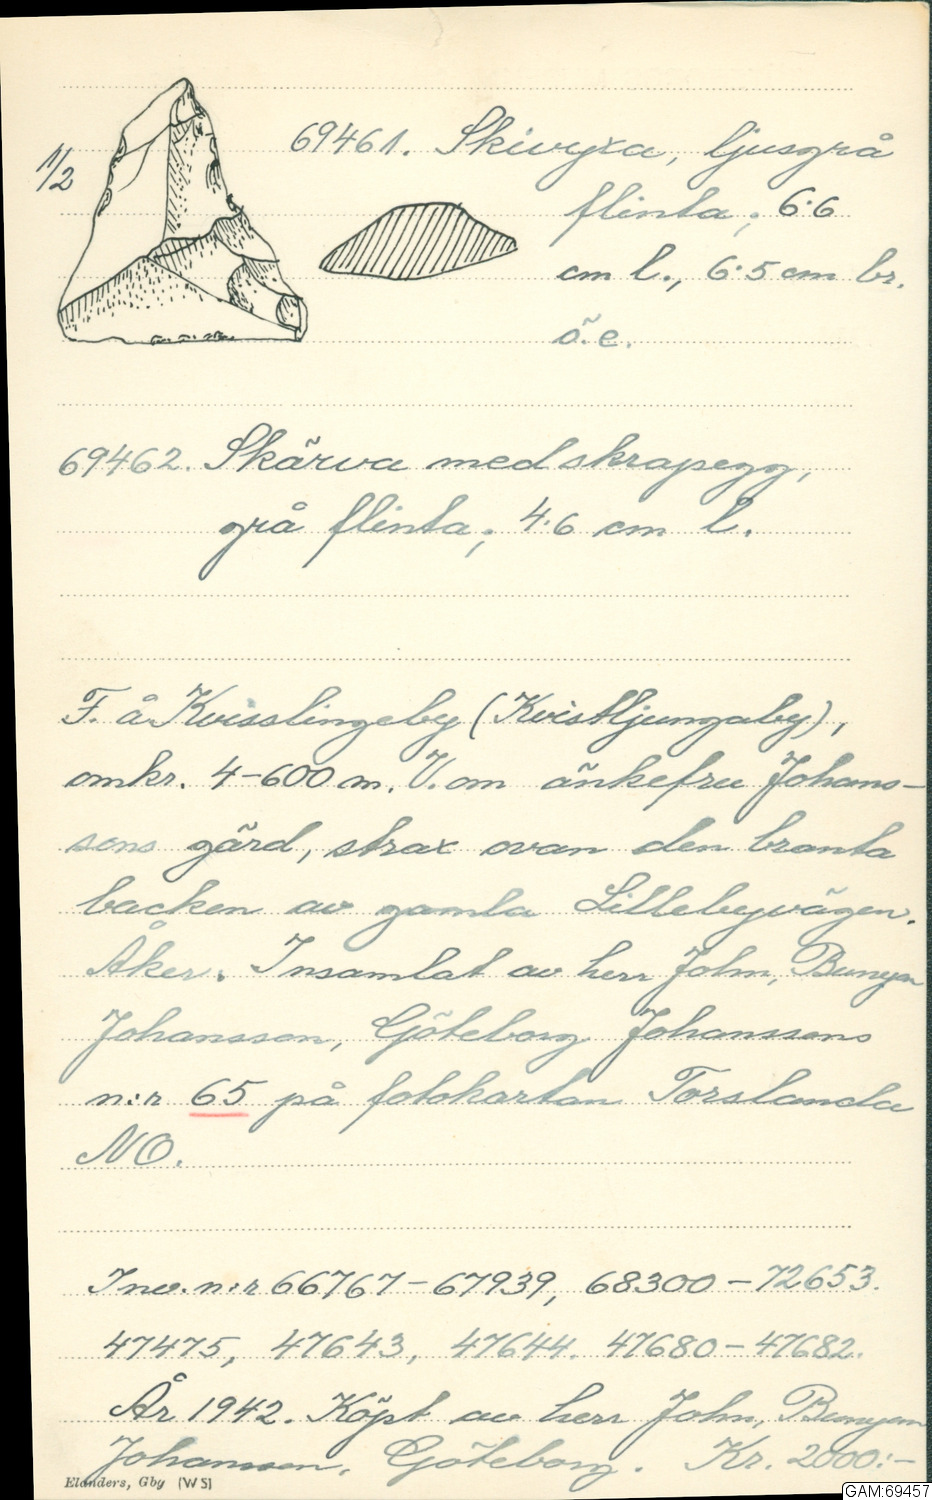 1/2
69461. Skivyxa, ljusgrå
flinta; 6.6
cm l., 6.5 cm br.
ö.e.
69462. Skärva med skrapegg,
grå flinta; 4.6 cm l.
F. å Kvisslingeby (Kvistljungaby),
omkr. 4-600 m. V. om änkefru Johans-
sons gård, strax ovan den branta
backen av gamla Lillebyvägen.
Åker. Insamlat av herr John, Bunyan
Johansson, Göteborg. Johanssons
n:r 65 på fotokartan Torslanda
NO.
Inv. n:r 66767-67939, 68300-72653.
47475, 47643, 47644. 47680-47682.
År 1942. Köpt av herr John, Bunyan
Johansson, Göteborg. Kr. 2000:-
Elanders, Gby (WS)
GAM:69457